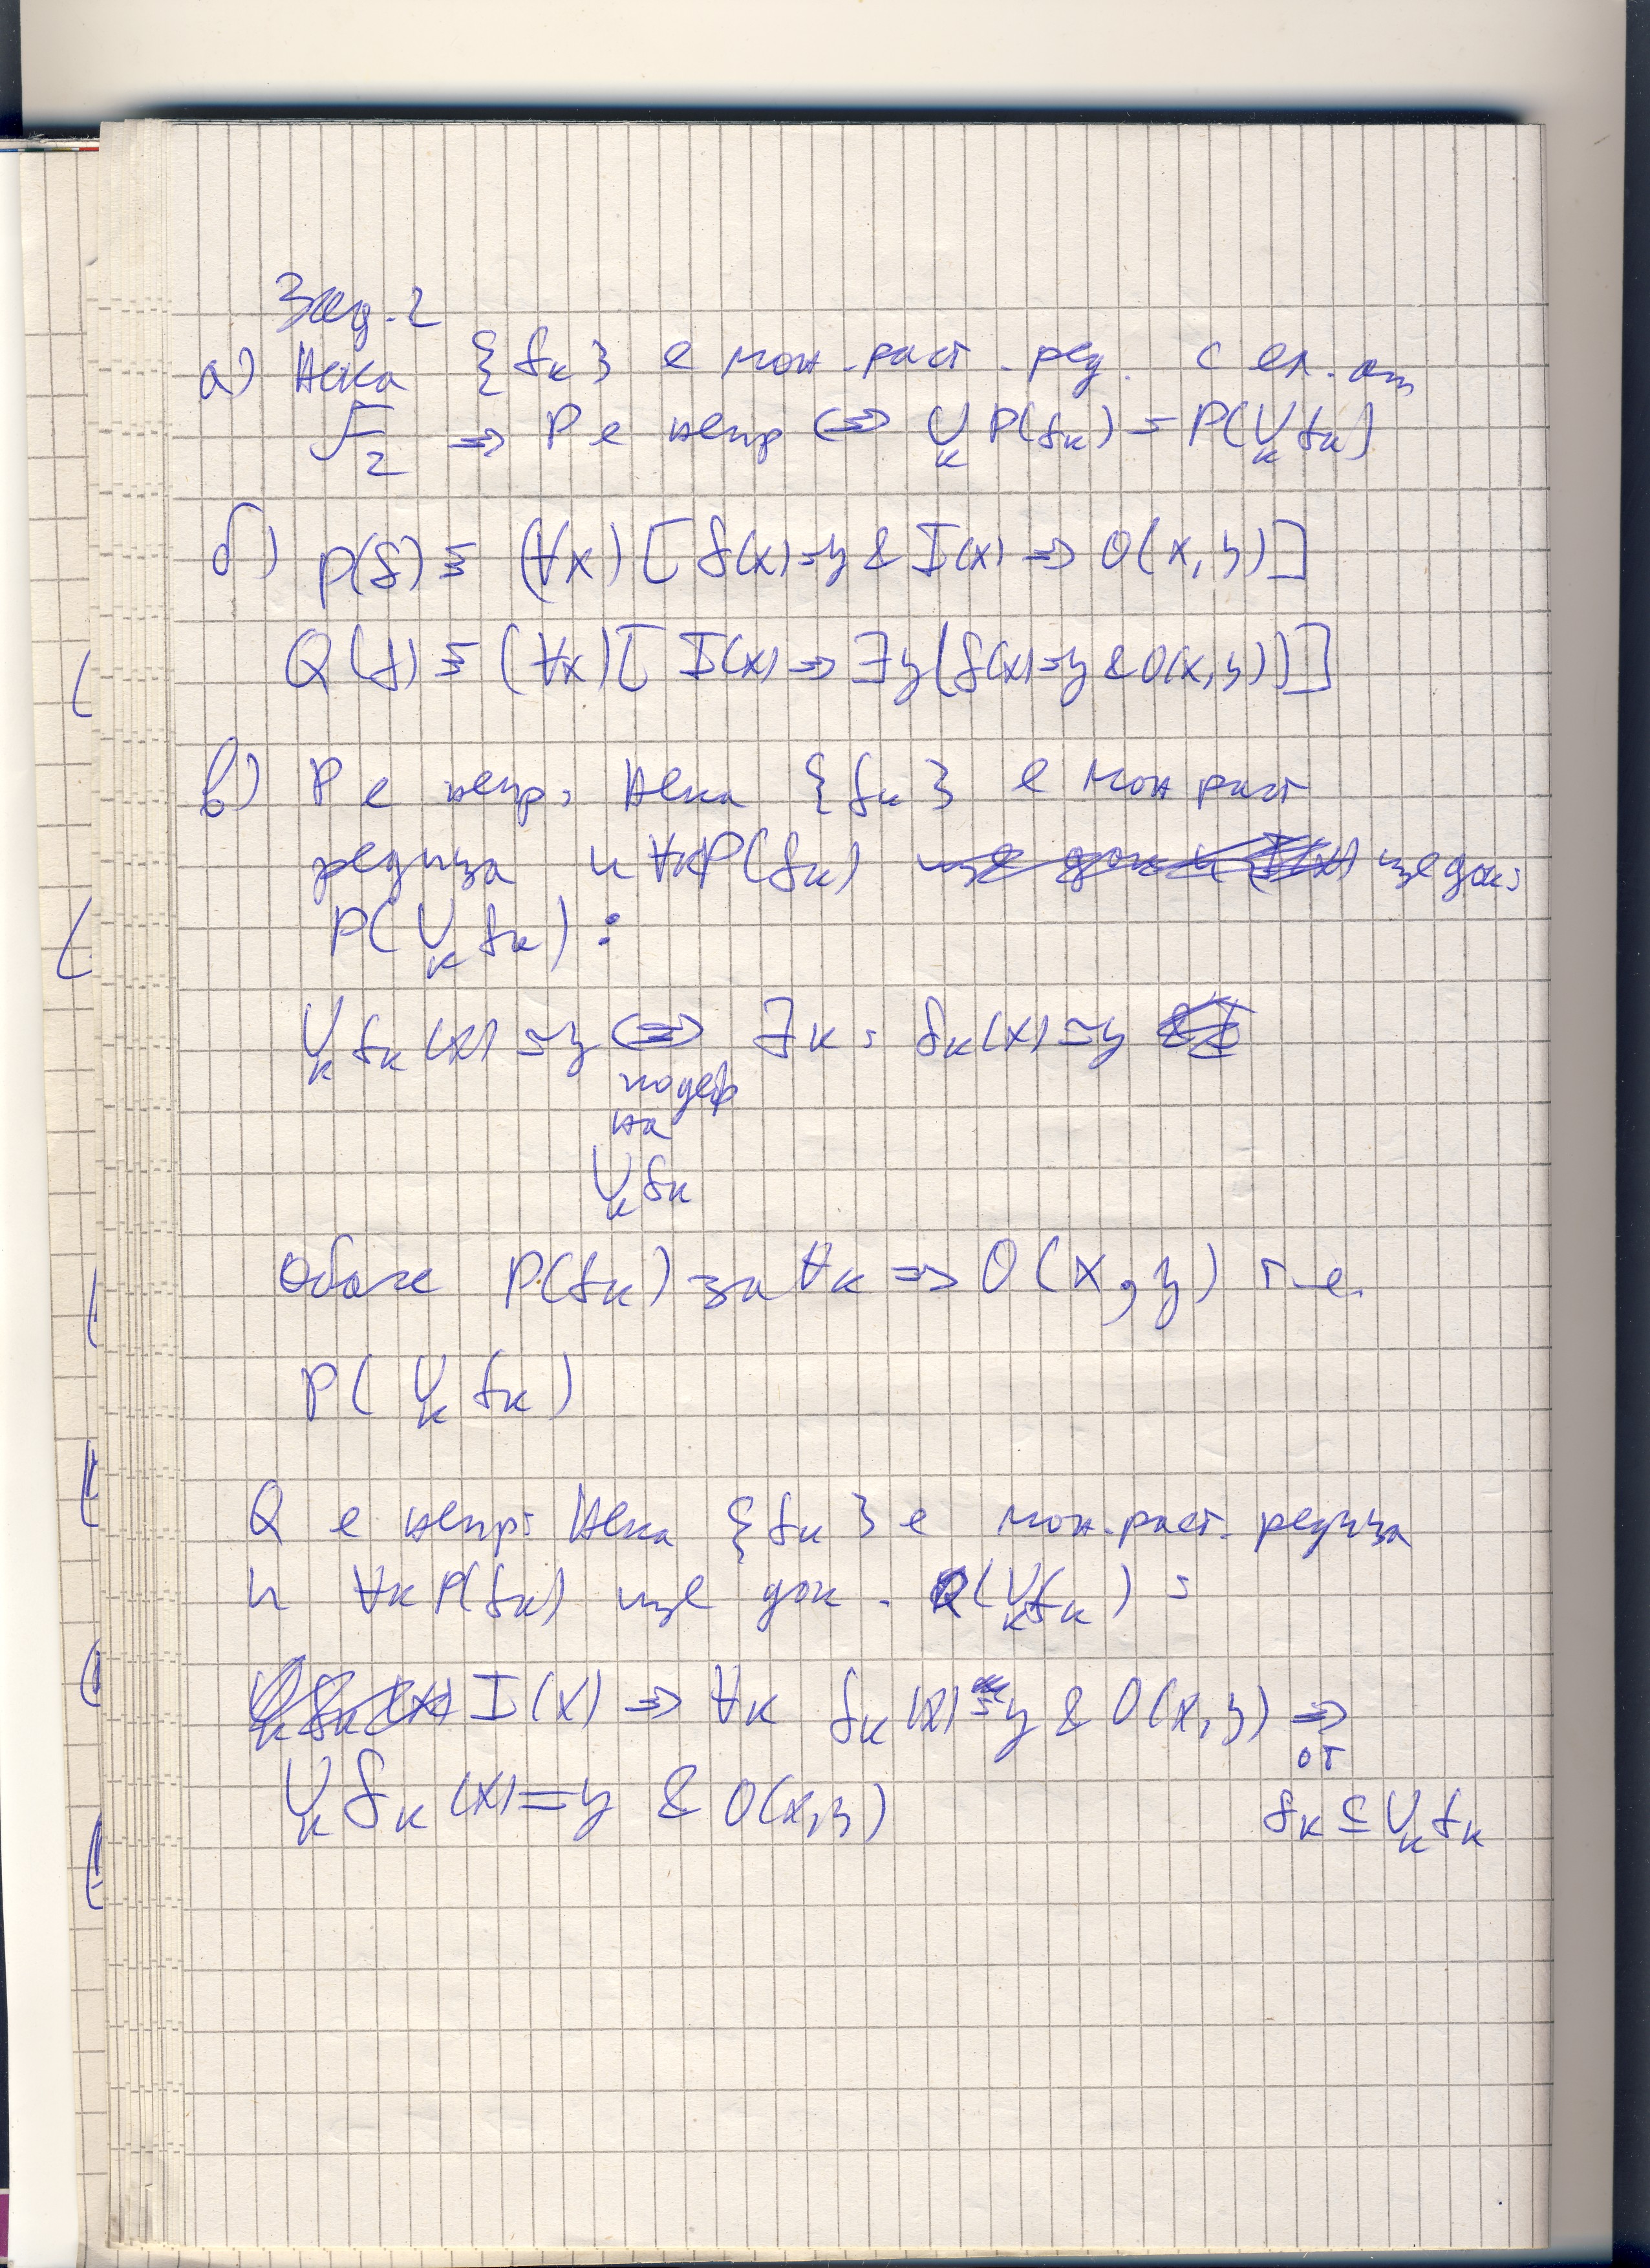 Зад. 2
а) Нека {fₖ} е мон. раст. ред. с ел. от
F₂ ⇒ P е непр ⇔ ⋃ₖ P(fₖ) = P(⋃ₖ fₖ)
б) P(f) ≡ (∀x)[f(x)=y & I(x) ⇒ O(x,y)]
Q(f) ≡ (∀x)[I(x) ⇒ ∃y(f(x)=y & O(x,y))]
в) P е непр: Нека {fₖ} е мон раст
редица и ∀k P(fₖ) ще док:
P(⋃ₖ fₖ) :
⋃ₖ fₖ(x)=y ⇔ ∃k: fₖ(x)=y
по деф
на
⋃ₖ fₖ
Обаче P(fₖ) за ∀k ⇒ O(x,y) т.е.
P(⋃ₖ fₖ)
Q е непр: Нека {fₖ} е мон. раст. редица
и ∀k P(fₖ) ще док. Q(⋃ₖ fₖ) :
I(x) ⇒ ∀k fₖ(x)=y & O(x,y) ⇒
от
⋃ₖ fₖ(x)=y & O(x,y) fₖ ⊆ ⋃ₖ fₖ